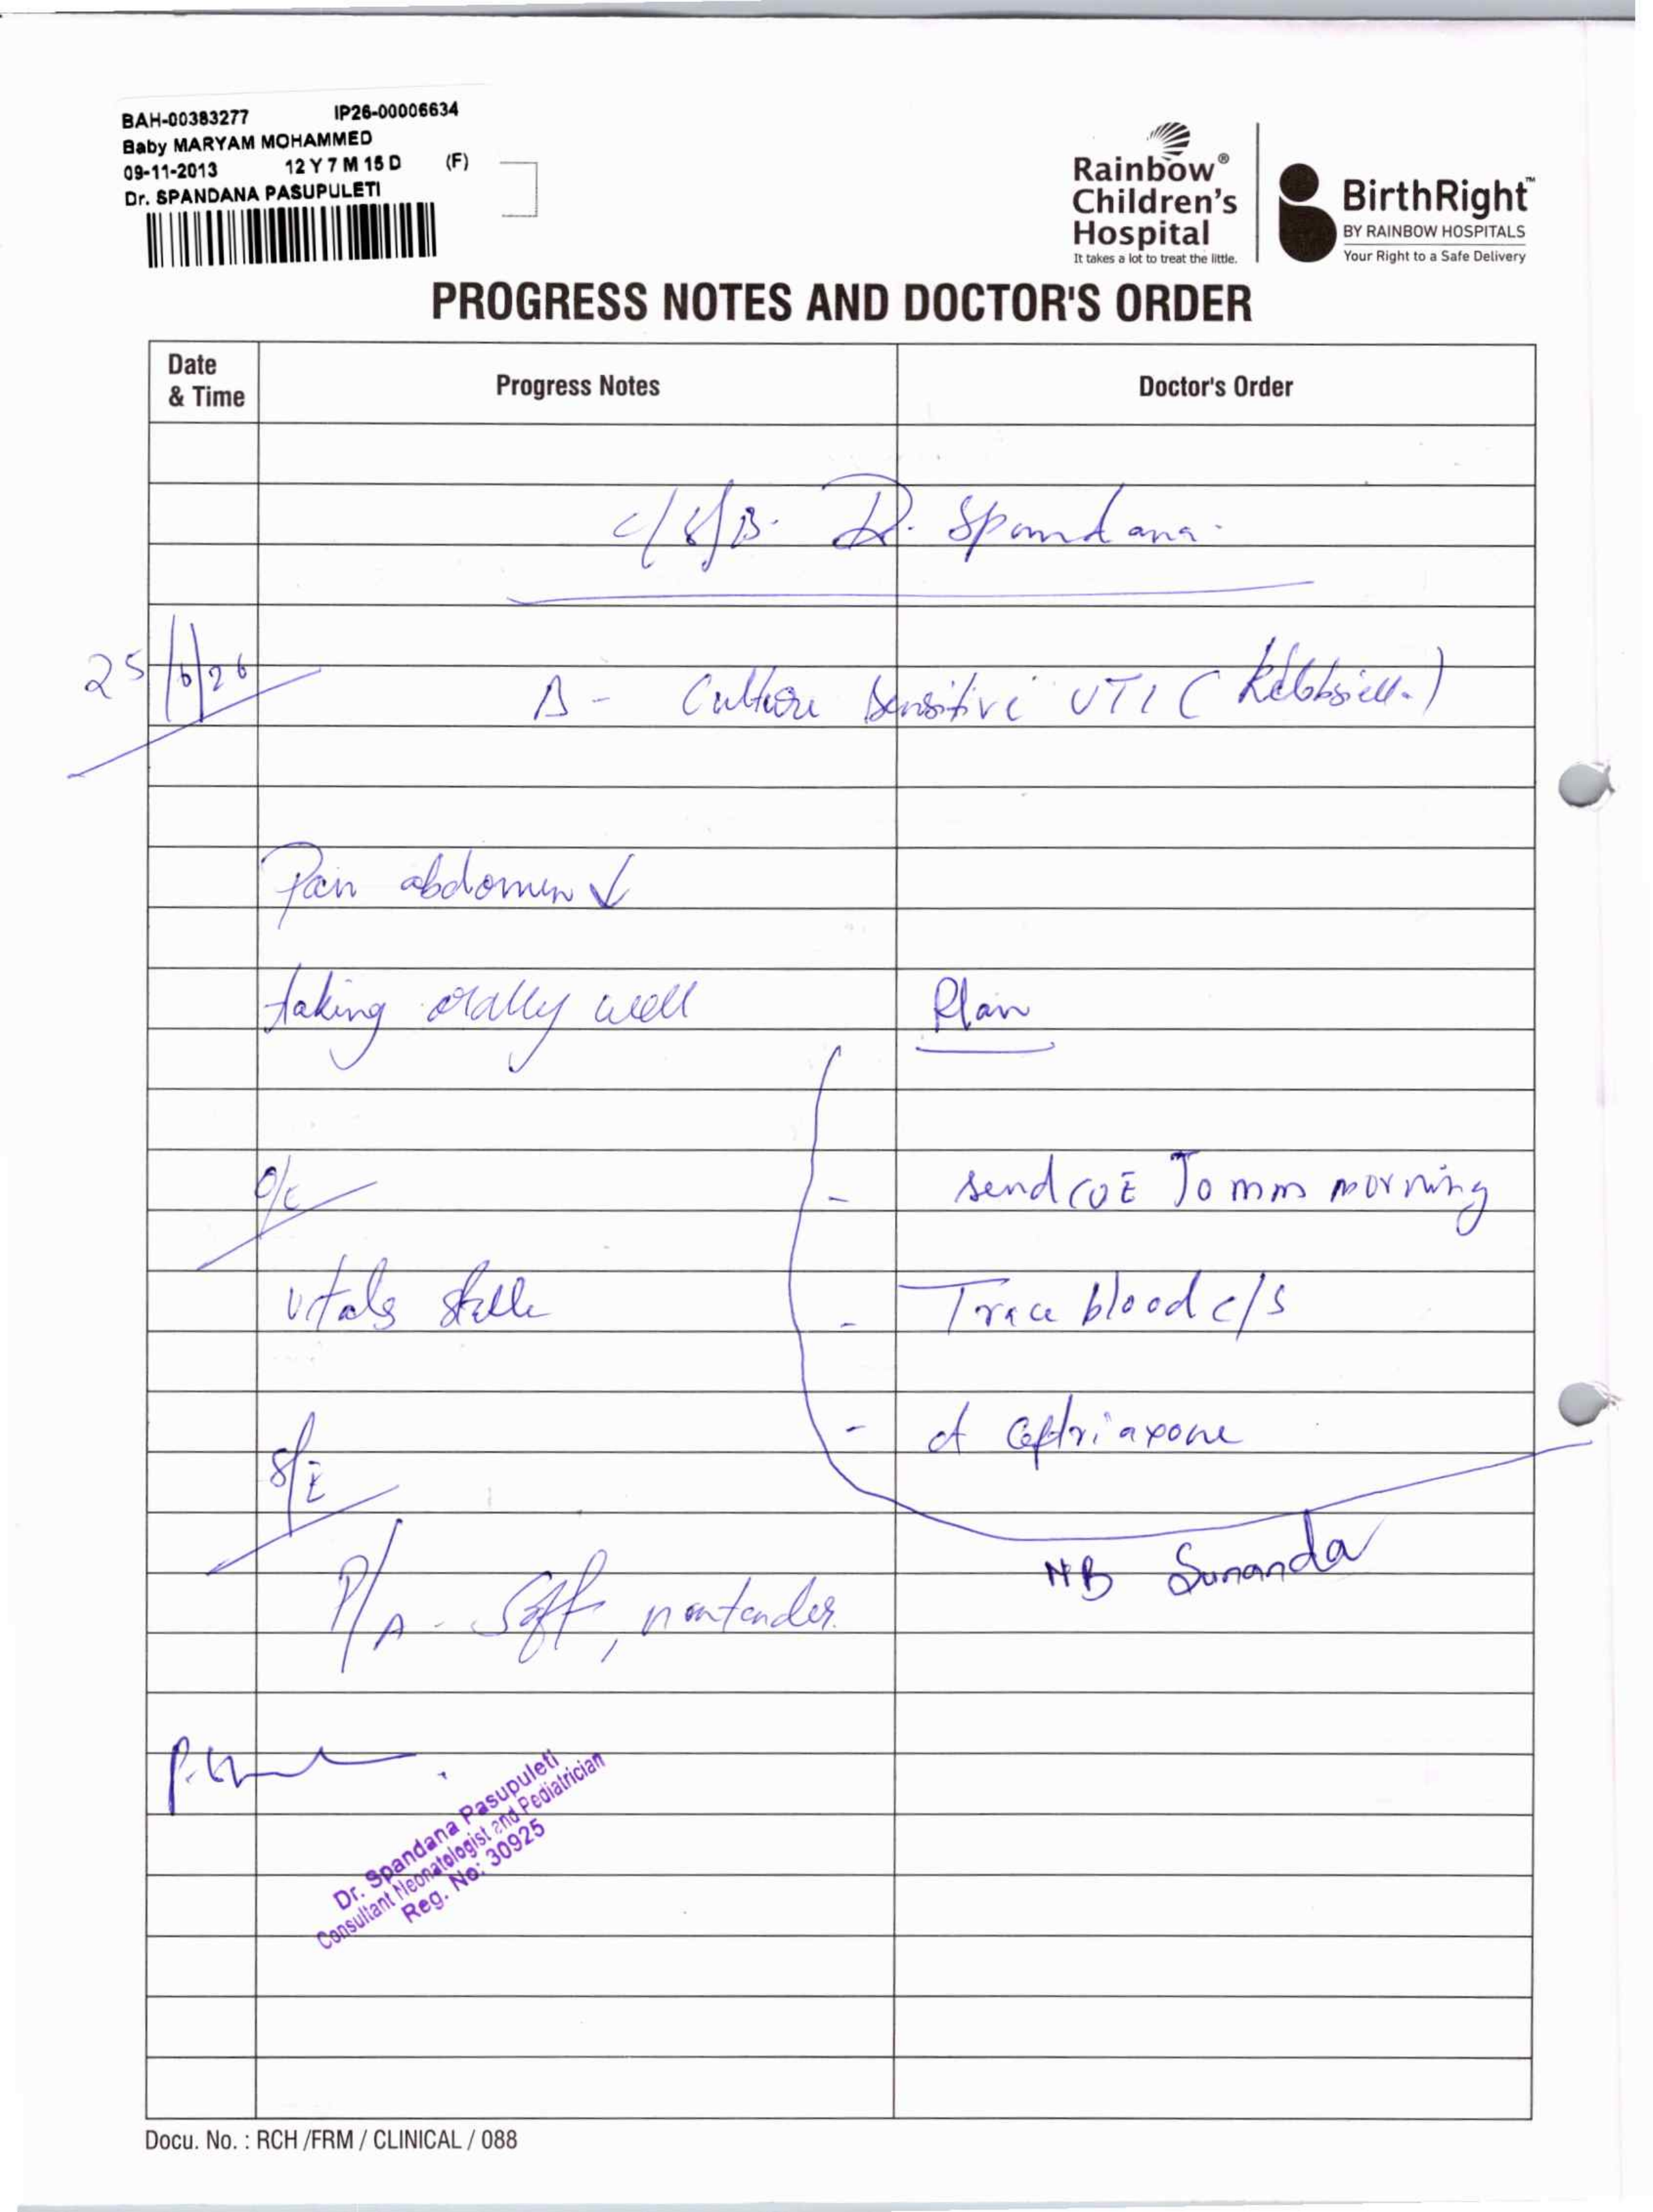 BAH-00383277 IP26-00006634
Baby MARYAM MOHAMMED
09-11-2013 12 Y 7 M 15 D (F)
Dr. SPANDANA PASUPULETI
Rainbow®
Children's
Hospital
It takes a lot to treat the little.
BirthRight™
BY RAINBOW HOSPITALS
Your Right to a Safe Delivery
PROGRESS NOTES AND DOCTOR'S ORDER
Date & Time Progress Notes Doctor's Order
c/s/B. Dr. Spandana.
25/6/26
Δ - Culture sensitive UTI (Klebsiella)
Pain abdomen ↓
taking orally well Plan
O/E - send CUE Tomm morning
vitals stable - Trace blood c/s
- ct ceftriaxone
S/E
P/A - Soft, nontender.
NB Sunanda
Dr. Spandana Pasupuleti
Consultant Neonatologist and Pediatrician
Reg. No: 30925
Docu. No. : RCH /FRM / CLINICAL / 088